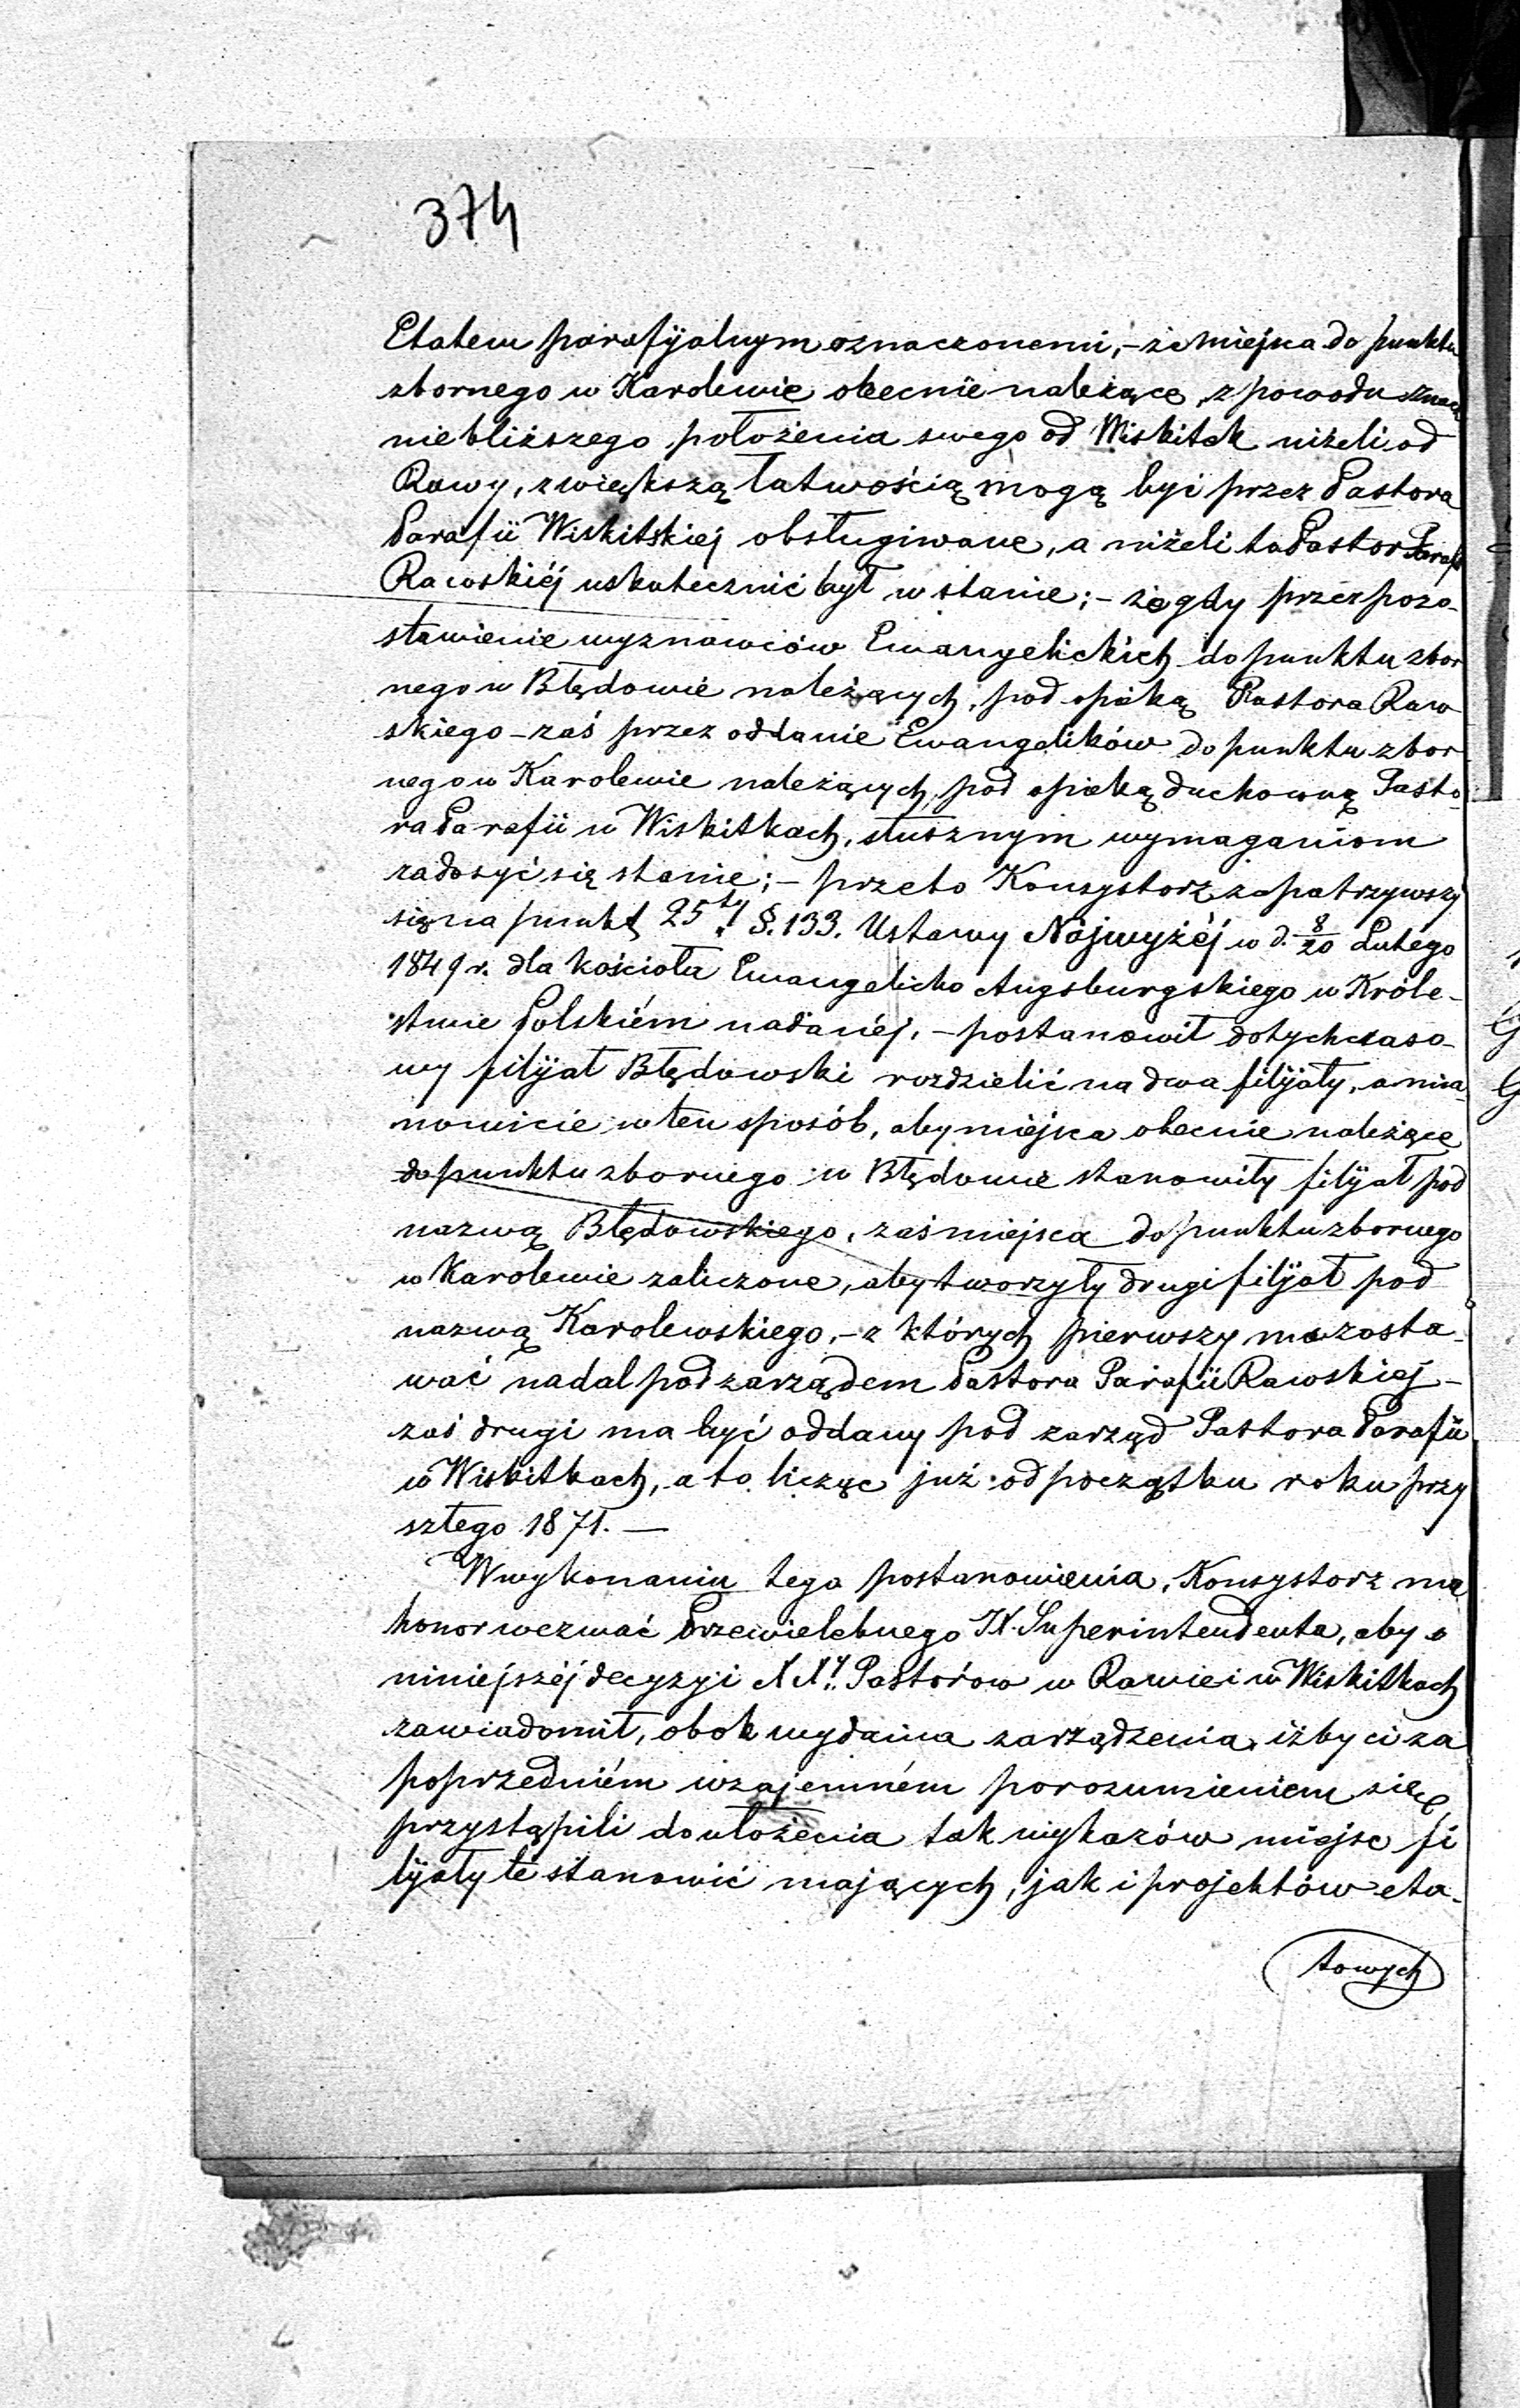 374
Etatem parafijalnym oznaczonemi, – że miejsca do punktu
zbornego w Karolewie obecnie należące, z powodu znacz
nie bliższego położenia swego od Wiskitek niżeli od
Rawy, z większą łatwością mogą być przez Pastora
Parafii Wiskitskiej obsługiwane, a niżeli to Pastor Parafii
Rawskiéj uskutecznić był w stanie; – że gdy przez pozo-
stawienie wyznawców Ewangelickich do punktu zbor
nego w Błędowie należących, pod opieką Pastora Raw
skiego – zaś przez oddanie Ewangelików do punktu zbor
nego w Karolewie należących, pod opiekę duchowną Pasto-
ra Parafii w Wiskitkach, słusznym wymaganiom
zadosyć się stanie; – przeto Konsystorz zapatrzywszy
się na punkt 25ty §. 133. Ustawy Najwyżéj w d. 8/20 Lutego
1849 r. dla kościoła Ewangelicko Augsburgskiego w Króle-
stwie Polskiém nadanéj, – postanowił dotychczaso-
wy filijał Błędowski rozdzielić na dwa filijały, a mia-
nowicie w ten sposób, aby miejsca obecnie należące
do punktu zbornego w Błędowie stanowiły filijał pod
nazwą Błędowskiego, zaś miejsca do punktu zbornego
w Karolewie zaliczone, aby tworzyły drugi filijał pod
nazwą Karolewskiego, – z których pierwszy ma zosta-
wać nadal pod zarządem Pastora Parafii Rawskiej –
zaś drugi ma być oddany pod zarząd Pastora Parafii
w Wiskitkach, a to licząc już od początku roku przy
szłego 1871. –
W wykonaniu tego postanowienia, Konsystorz ma
honor wezwać Przewielebnego JX. Superintendenta, aby o
niniejszéj decyzyi XXy Pastorów w Rawie i w Wiskitkach
zawiadomił, obok wydania zarządzenia, iżby ci za
poprzedniém wzajemném porozumieniem się,
przystąpili do ułożenia tak wykazów miejsc fi
lijały te stanowić mających, jak i projektów eta-
towych